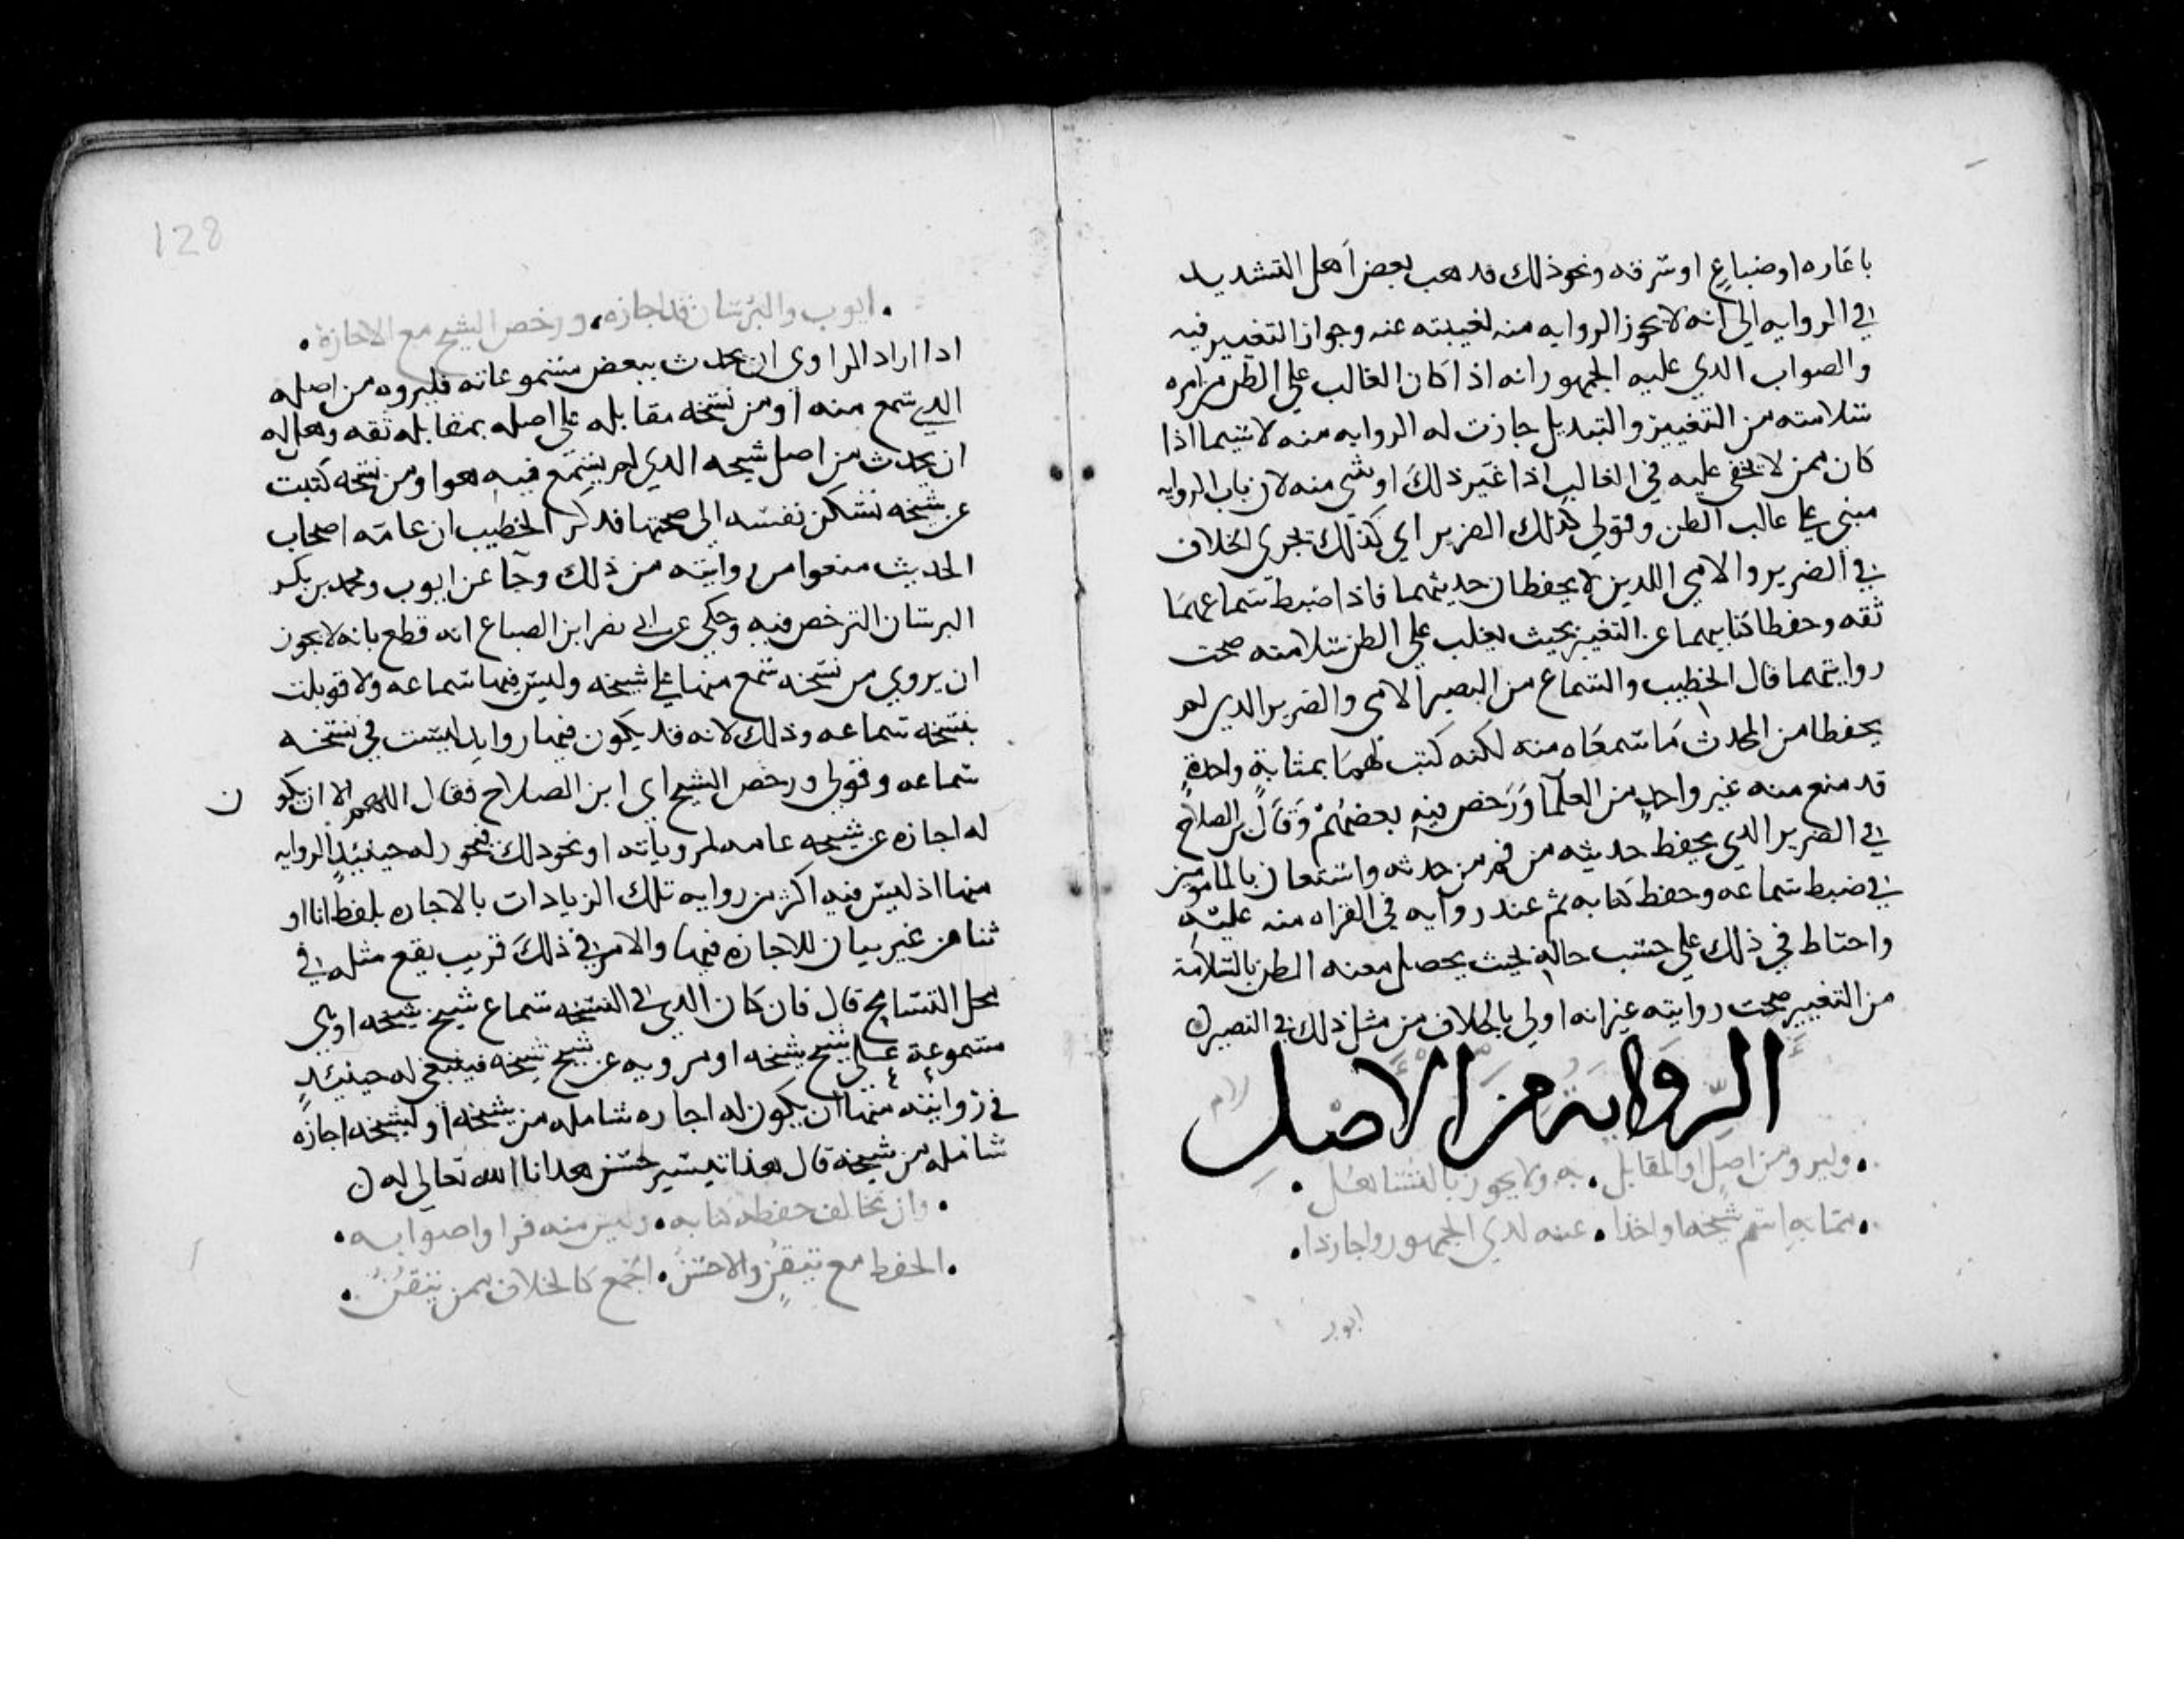 باعاره او ضياع او سرقه ونحو ذلك فدهب بعض اهل التشديد
في الروايه الى انه لا يجوز الروايه منه لغيبته عنه وجواز التغيير فيه
والصواب الدي عليه الجمهور انه اذا كان الغالب على الظن من امره
سلامته من التغيير والتبديل جازت له الروايه منه لا سيما اذا
كان ممن لا يخفى عليه في الغالب اذا غير ذلك او شي منه لان باب الروايه
مبني على غالب الظن وقولي كذلك الضرير اي كذلك يجرى الخلاف
في الضرير والامي اللدين لا يحفظان حديثهما فاذا ضبط سماعهما
ثقه وحفظا كتابيهما عن التغيير بحيث يغلب على الظن سلامته صحت
روايتهما قال الخطيب والسماع من البصير الامي والضرير الدي لم
يحفظا من المحدث ما سمعاه منه لكنه كتب لهما بمثابة واحدة
قد منع منه غير واحد من العلما ورخص فيه بعضهم وقال بن الصلاح
في الضرير الدي يحفظ حديثه من فم من حدثه واستعان بالمامونين
في ضبط سماعه وحفظ كتابه ثم عند روايه في القراه منه عليه
واحتاط في ذلك على حسب حاله بحيث يحصل معه الظن بالسلامة
من التغيير صحت روايته غير انه اولى بالخلاف من مثل ذلك في البصير ن
الرواية من الاصل
• وليرو من اصل او المقابل • به ولا يجوز بالتساهل •
• مما به اسم شيخه او اخدا • عنه لدي الجمهور واجازذا •
ايوب
128
• ايوب والبرسان قد اجازه • ورخص الشيخ مع الاجازة •
اذا اراد الراوي ان يحدث ببعض مسموعاته فليروه من اصله
الدي سمع منه او من نسخه مقابله على اصله بمقابله ثقه وهل له
ان يحدث من اصل شيخه الدي لم يسمع فيه هو او من نسخه كتبت
عن شيخه تسكن نفسه الى صحتها فدكر الخطيب ان عامة اصحاب
الحديث منعوا من روايته من ذلك وجا عن ايوب ومحمد بن بكر
البرسان الترخص فيه وحكي عن ابي نصر ابن الصباغ انه قطع بانه لا يجوز
ان يروي من نسخه سمع منها على شيخه وليس فيها سماعه ولا قوبلت
بنسخه سماعه وذلك لانه قد يكون فيها روايد ليست في نسخه
سماعه وقولى ورخص الشيخ اي ابن الصلاح فقال اللهم الا ان يكون
له اجازه عن شيخه عامه لمروياته او نحو ذلك فيجوز له حينيذ الروايه
منها اذ ليس فيه اكثر من روايه تلك الزيادات بالاجازه بلفظ انا او
ثنا من غير بيان للاجازه فيها والامر في ذلك قريب يقع مثله في
محل التسامح قال فان كان الدي في النسخه سماع شيخ شيخه او هي
مسموعة على شيخ شيخه او مرويه عن شيخ شيخه فينبغي له حينيذ
في روايته منها ان يكون له اجازه شامله من شيخه او لشيخه اجازه
شامله من شيخه قال هذا تيسير حسن هدانا الله تعالى له ن
• وان يخالف حفظه كتابه • وليس منه فرا واصوابه •
• الحفظ مع تيقن والاحسن • اجمع كالخلاف ممن يتقن •